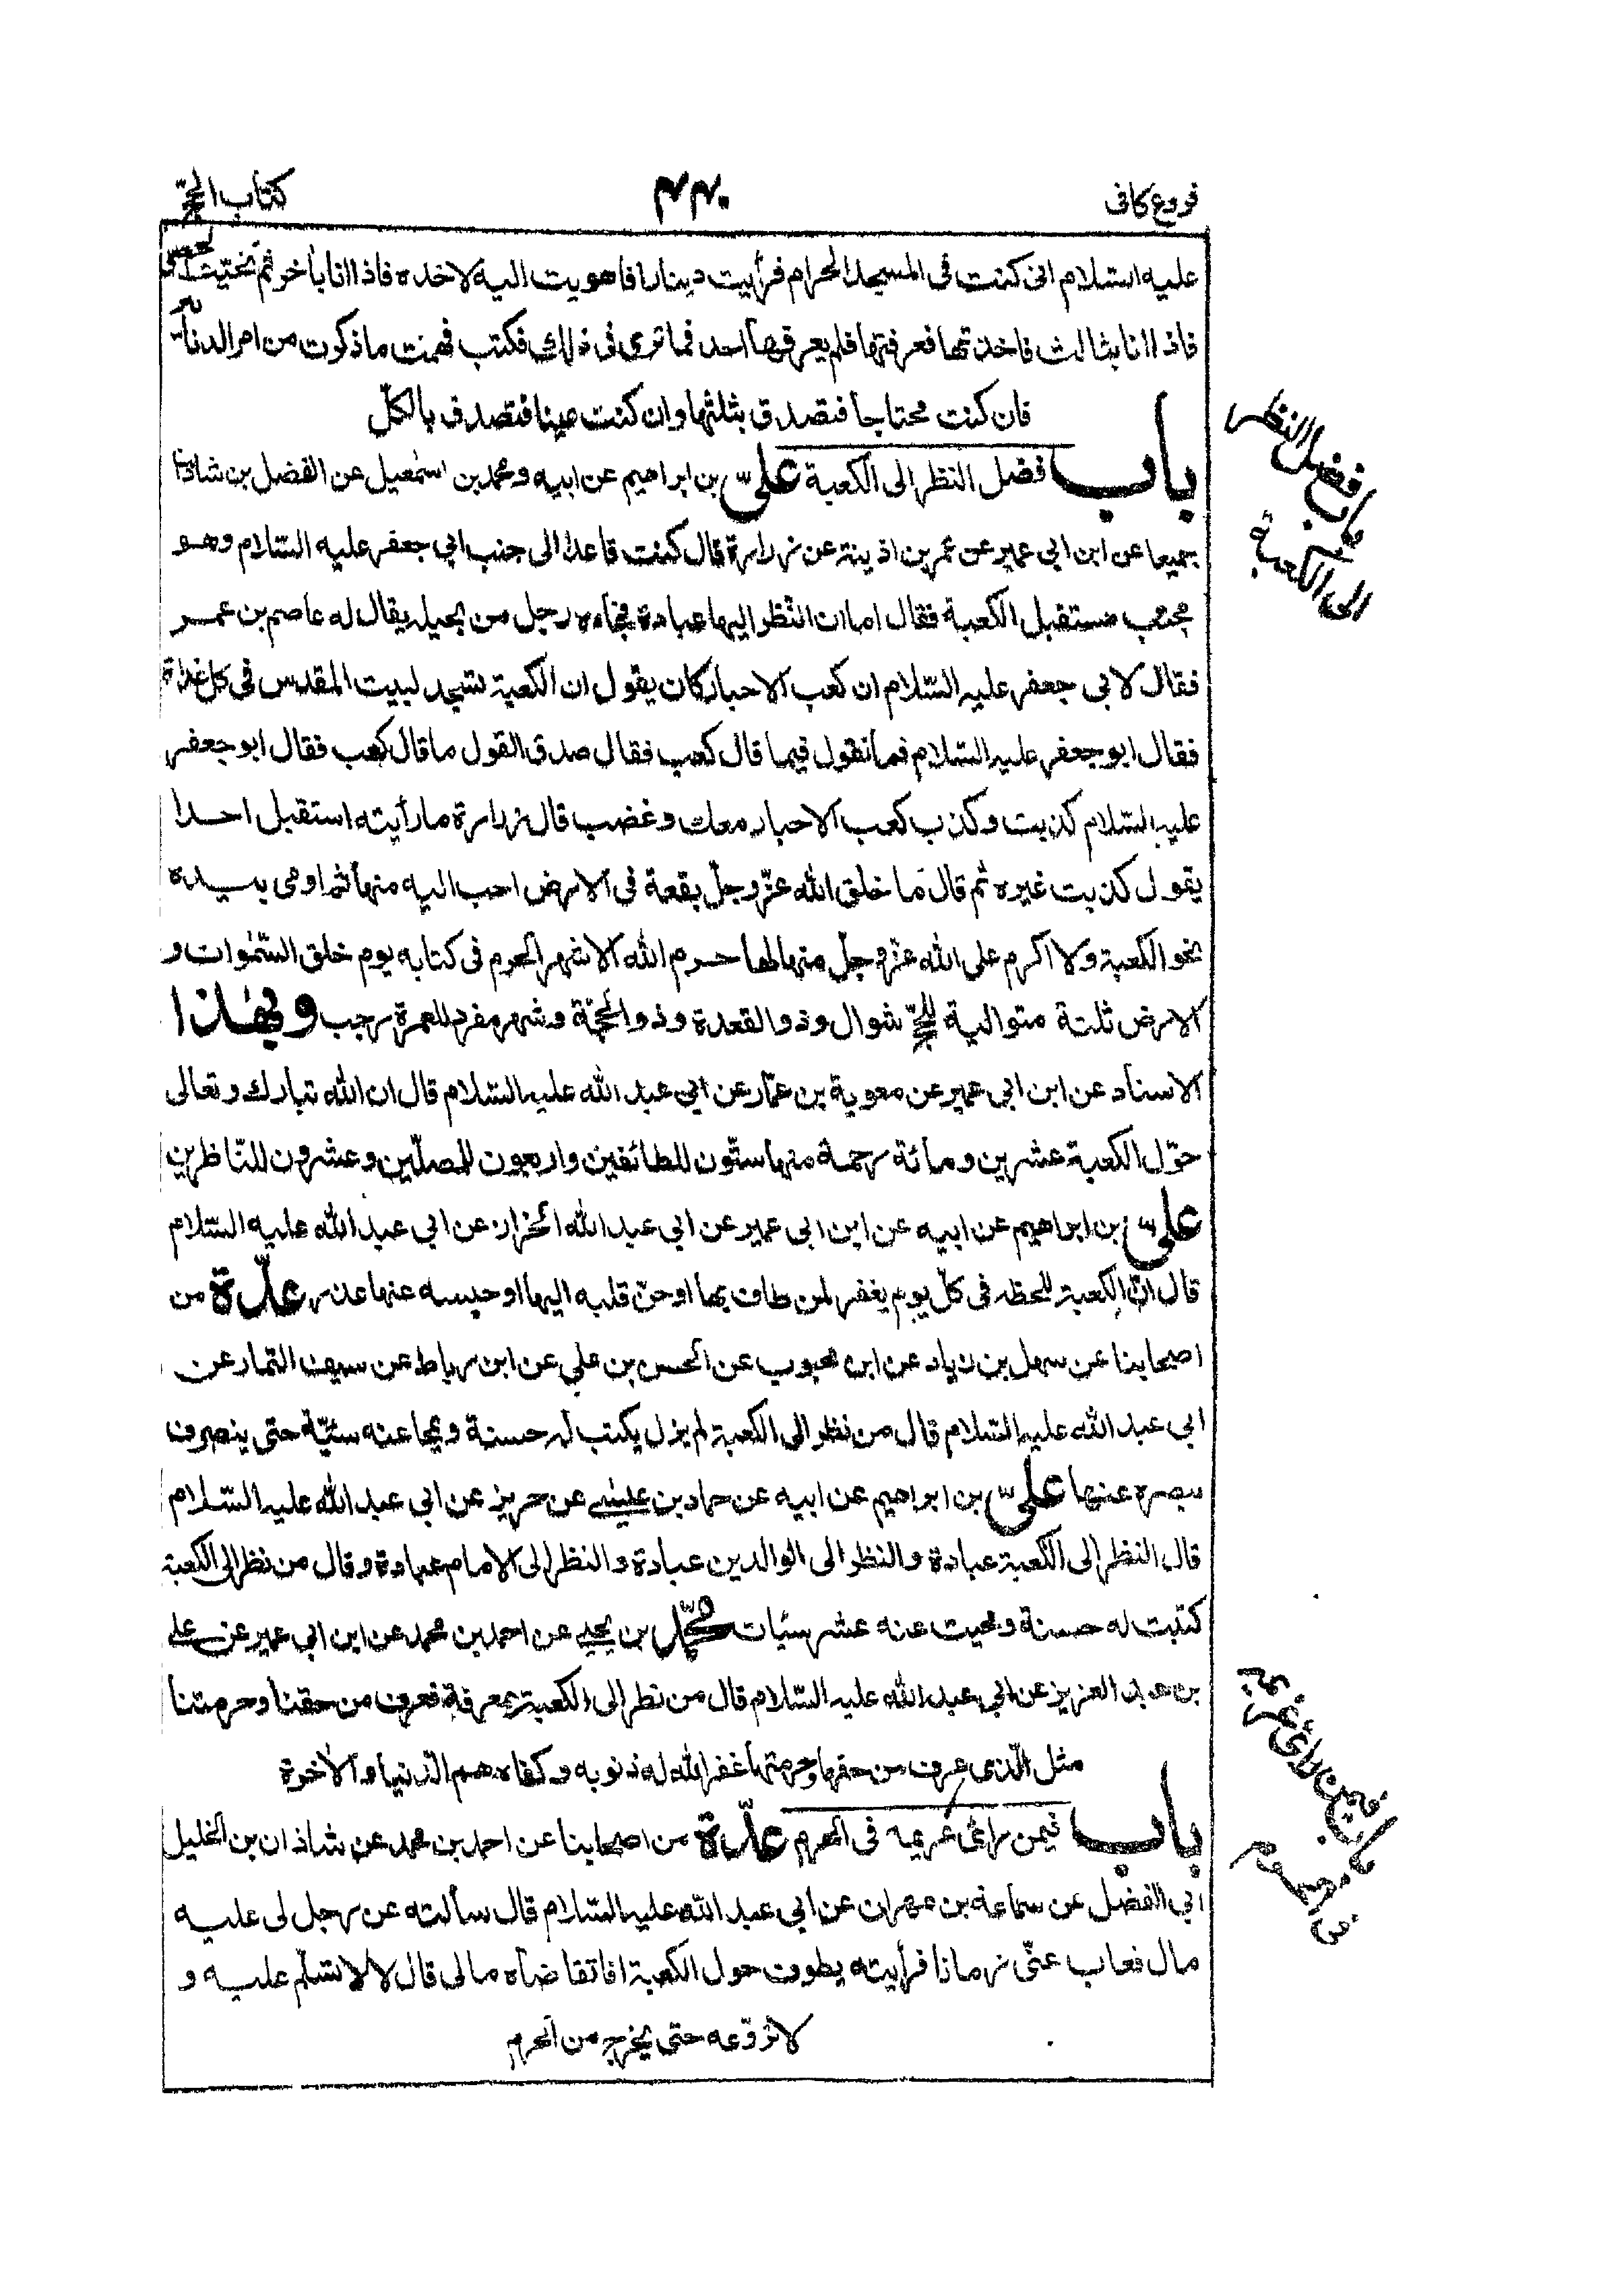 فروع كافى
٤٤٠
كتاب الحجّ
عليه السّلام انى كنت فى المسجد الحرام فرأيت دينارا فاهويت اليه لاخذه فاذا انا باخر ثم نحّيت الحصى
فاذا انا بثالث فاخذتها فعرفتها فلم يعرفها احد فما ترى فى ذلك فكتب فهمت ما ذكرت من امر الدنانير
فان كنت محتاجا فتصدق بثلثها وان كنت غنيا فتصدق بالكلّ
باب فضل النظر الى الكعبة علىّ بن ابراهيم عن ابيه ومحمد بن اسمعيل عن الفضل بن شاذان
جميعا عن ابن ابى عمير عن عمر بن اذينة عن زرارة قال كنت قاعدا الى جنب ابي جعفر عليه السّلام وهو
محتب مستقبل الكعبة فقال اما ان النّظر اليها عبادة فجاءه رجل من بجيلة يقال له عاصم بن عمر
فقال لابى جعفر عليه السّلام ان كعب الاحبار كان يقول ان الكعبة تسجد لبيت المقدس فى كل غداة
فقال ابو جعفر عليه السّلام فما تقول فيما قال كعب فقال صدق القول ما قال كعب فقال ابو جعفر
عليه السّلام كذبت وكذب كعب الاحبار معك وغضب قال زرارة ما رأيته استقبل احدا
يقول كذبت غيره ثم قال ما خلق الله عزّ وجلّ بقعة فى الارض احب اليه منها ثم اومى بيده
نحو الكعبة ولا اكرم على الله عزّ وجلّ منها لها حرم الله الاشهر الحرم فى كتابه يوم خلق السّموات و
الارض ثلثة متوالية للحجّ شوال وذو القعدة وذو الحجّة وشهر مفرد للعمرة رجب وبهذا
الاسناد عن ابن ابي عمير عن معوية بن عمّار عن ابي عبد الله عليه السّلام قال ان الله تبارك وتعالى
حوّل الكعبة عشرين ومائة رحمة منها ستّون للطائفين واربعون للمصلّين وعشرون للنّاظرين
علىّ بن ابراهيم عن ابيه عن ابن ابى عمير عن ابي عبد الله الخزاز عن ابي عبد الله عليه السّلام
قال انّ للكعبة للحظة فى كلّ يوم يغفر لمن طاف بها او حنّ قلبه اليها او حبسه عنها عذر عدّة من
اصحابنا عن سهل بن زياد عن ابن محبوب عن الحسن بن علي عن ابن رباط عن سيف التمار عن
ابي عبد الله عليه السّلام قال من نظر الى الكعبة لم يزل يكتب له حسنة ويمحا عنه سيّئة حتى ينصرف
ببصره عنها علىّ بن ابراهيم عن ابيه عن حماد بن عيسى عن حريز عن ابي عبد الله عليه السّلام
قال النظر الى الكعبة عبادة والنظر الى الوالدين عبادة والنظر الى الامام عبادة وقال من نظر الى الكعبة
كتبت له حسنة ومحيت عنه عشر سيئات محمّد بن يحيى عن احمد بن محمد عن ابن ابي عمير عن على
بن عبد العزيز عن ابي عبد الله عليه السّلام قال من نظر الى الكعبة بمعرفة فعرف من حقنا وحرمتنا
مثل الّذى عرف من حقها وحرمتها غفر الله له ذنوبه وكفاه هم الدّنيا والاخرة
باب فيمن راى غريمه فى الحرم عدّة من اصحابنا عن احمد بن محمد عن شاذان بن الخليل
ابي الفضل عن سماعة بن مهران عن ابي عبد الله عليه السّلام قال سألته عن رجل لى عليه
مال فغاب عنّى زمانا فرأيته يطوف حول الكعبة افاتقاضاه مالى قال لا لا تسلّم عليه و
لا تروّعه حتى يخرج من الحرم
باب فضل النظر
الى الكعبة
باب فيمن راى غريمه
فى الحرم